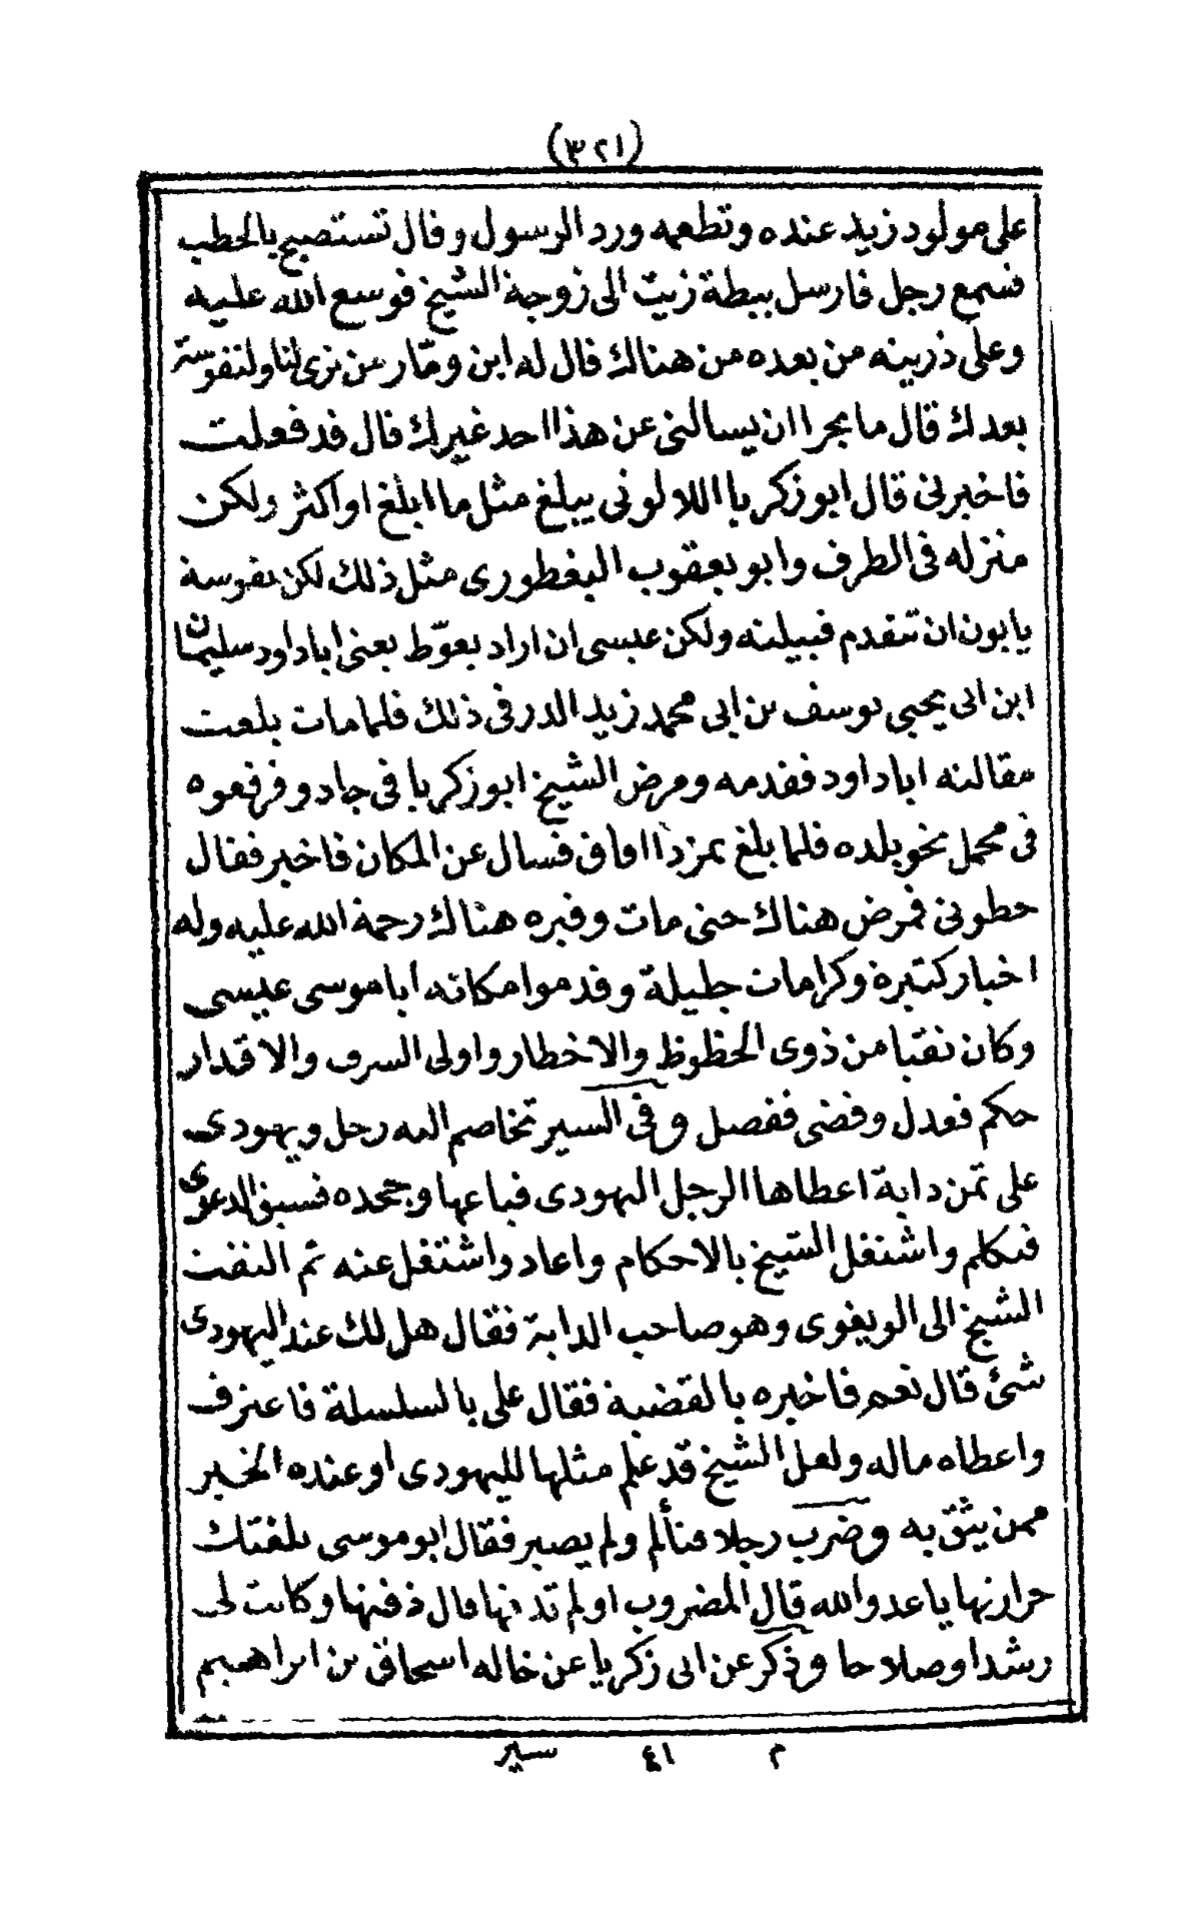 (٣٢١)
على مولود زيد عنده وتطعمه ورد الرسول وقال تستصبح بالحطب
فسمع رجل فارسل ببطة زيت الى زوجة الشيخ فوسع الله عليه
وعلى ذريته من بعده من هناك قال له ابن ومّار من ترى لنا ولنفوسة
بعدك قال ما يجرا ان يسالنى عن هذا احد غيرك قال قد فعلت
فاخبرنى قال ابو زكريا اللالوتى يبلغ مثل ما ابلغ او اكثر ولكن
منزله فى الطرف وابو يعقوب البغطورى مثل ذلك لكن نفوسة
يابون ان تتقدم قبيلته ولكن عيسى ان اراد يعوّط يعنى اباداود سليمان
ابن ابى يحيى يوسف بن ابى محمد زيد الدرفى ذلك فلما مات بلغت
مقالته اباداود فقدمه ومرض الشيخ ابو زكريا فى جادو فرفعوه
فى محمل نحو بلده فلما بلغ تمزدا افاق فسال عن المكان فاخبر فقال
حطونى فمرض هناك حتى مات وقبره هناك رحمة الله عليه وله
اخبار كثيرة وكرامات جليلة وقدموا مكانه ابا موسى عيسى
وكان نقيا من ذوى الحظوظ والاخطار واولى الشرف والاقدار
حكم فعدل وقضى ففصل وفى السير تخاصم اليه رجل ويهودى
على ثمن دابة اعطاها الرجل اليهودى فباعها وجحده فسبق الدعوى
فتكلم واشتغل الشيخ بالاحكام واعاد واشتغل عنه ثم التفت
الشيخ الى الويغوى وهو صاحب الدابة فقال هل لك عند اليهودى
شئ قال نعم فاخبره بالقضية فقال على بالسلسلة فاعترف
واعطاه ماله ولعل الشيخ قد علم مثلها لليهودى او عنده الخبر
ممن يثق به وضرب رجلا فتألم ولم يصبر فقال ابو موسى بلغتك
حرارتها يا عدو الله قال المضروب او لم تذقها قال ذقتها وكانت لى
رشدا وصلاحا وذكر عن ابى زكريا عن خاله اسحاق بن ابراهيم
م ٤١ سير